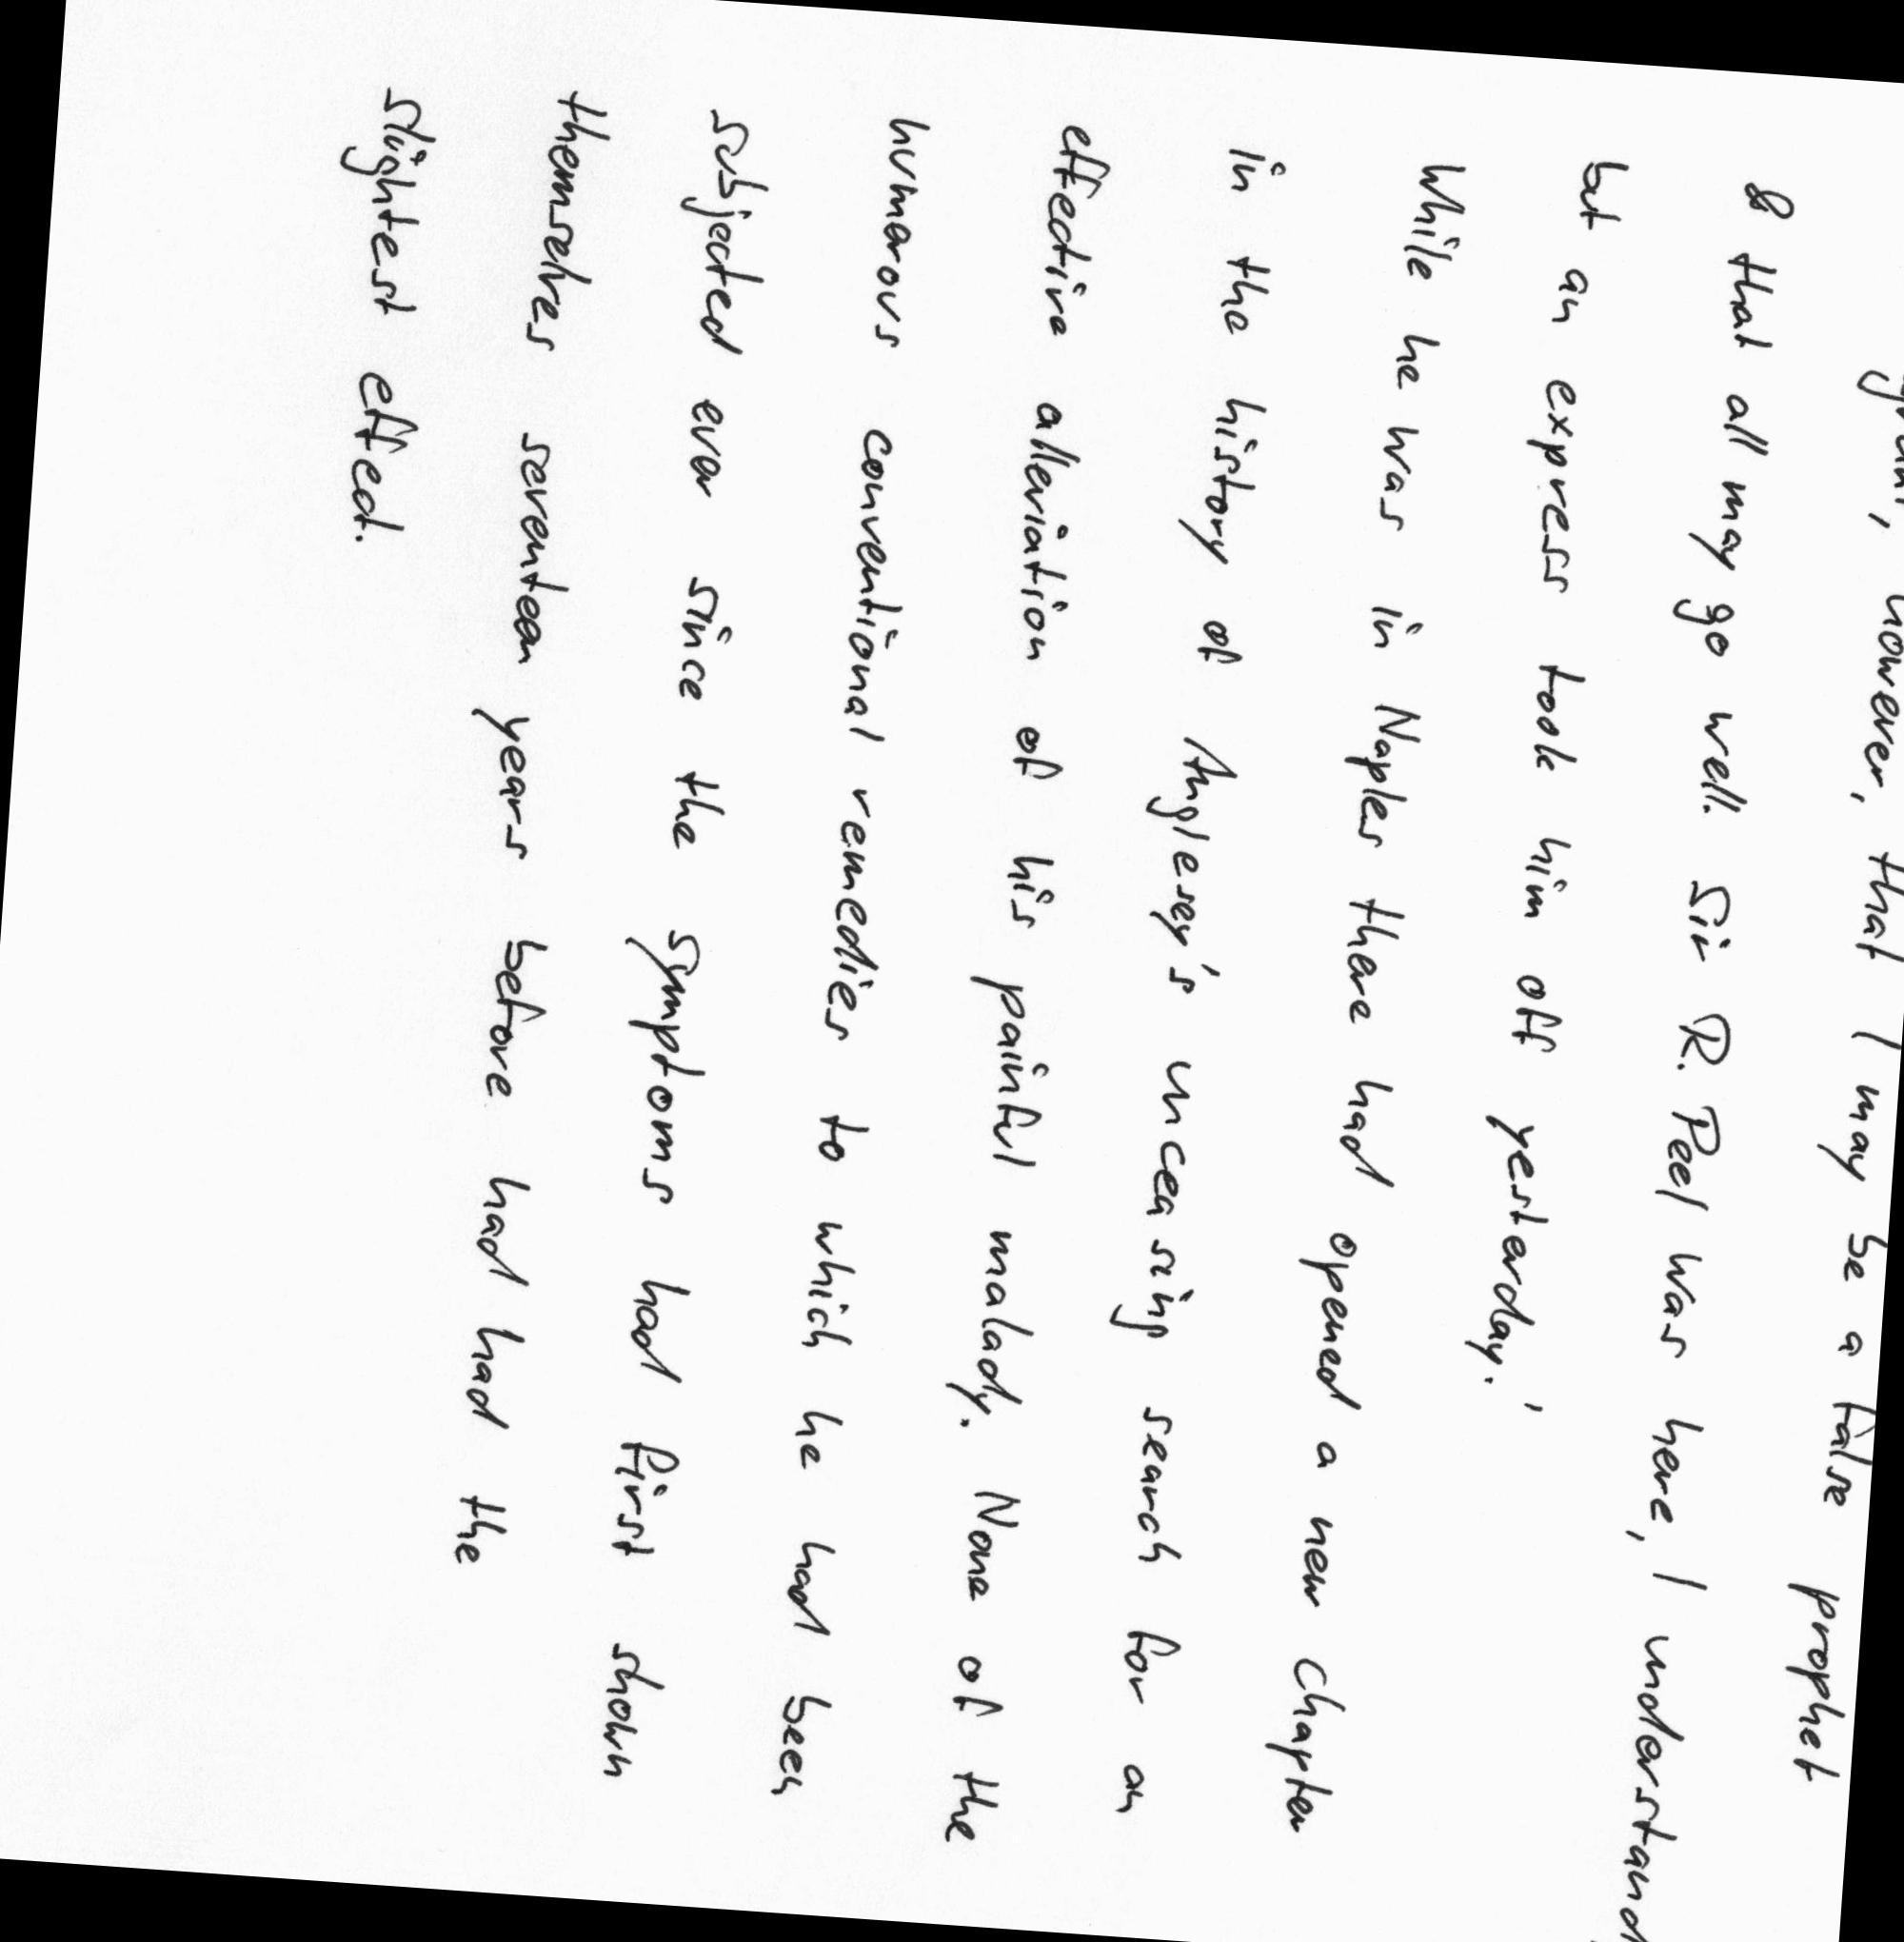 however, that I may be a false prophet
& that all may go well. Sir R. Peel was here, I understand
but an express took him off yesterday.'
While he was in Naples there had opened a new chapter
in the history of Anglesey's unceasing search for an
effective alleviation of his painful malady. None of the
numerous conventional remedies to which he had been
subjected ever since the symptoms had first shown
themselves seventeen years before had had the
slightest effect.